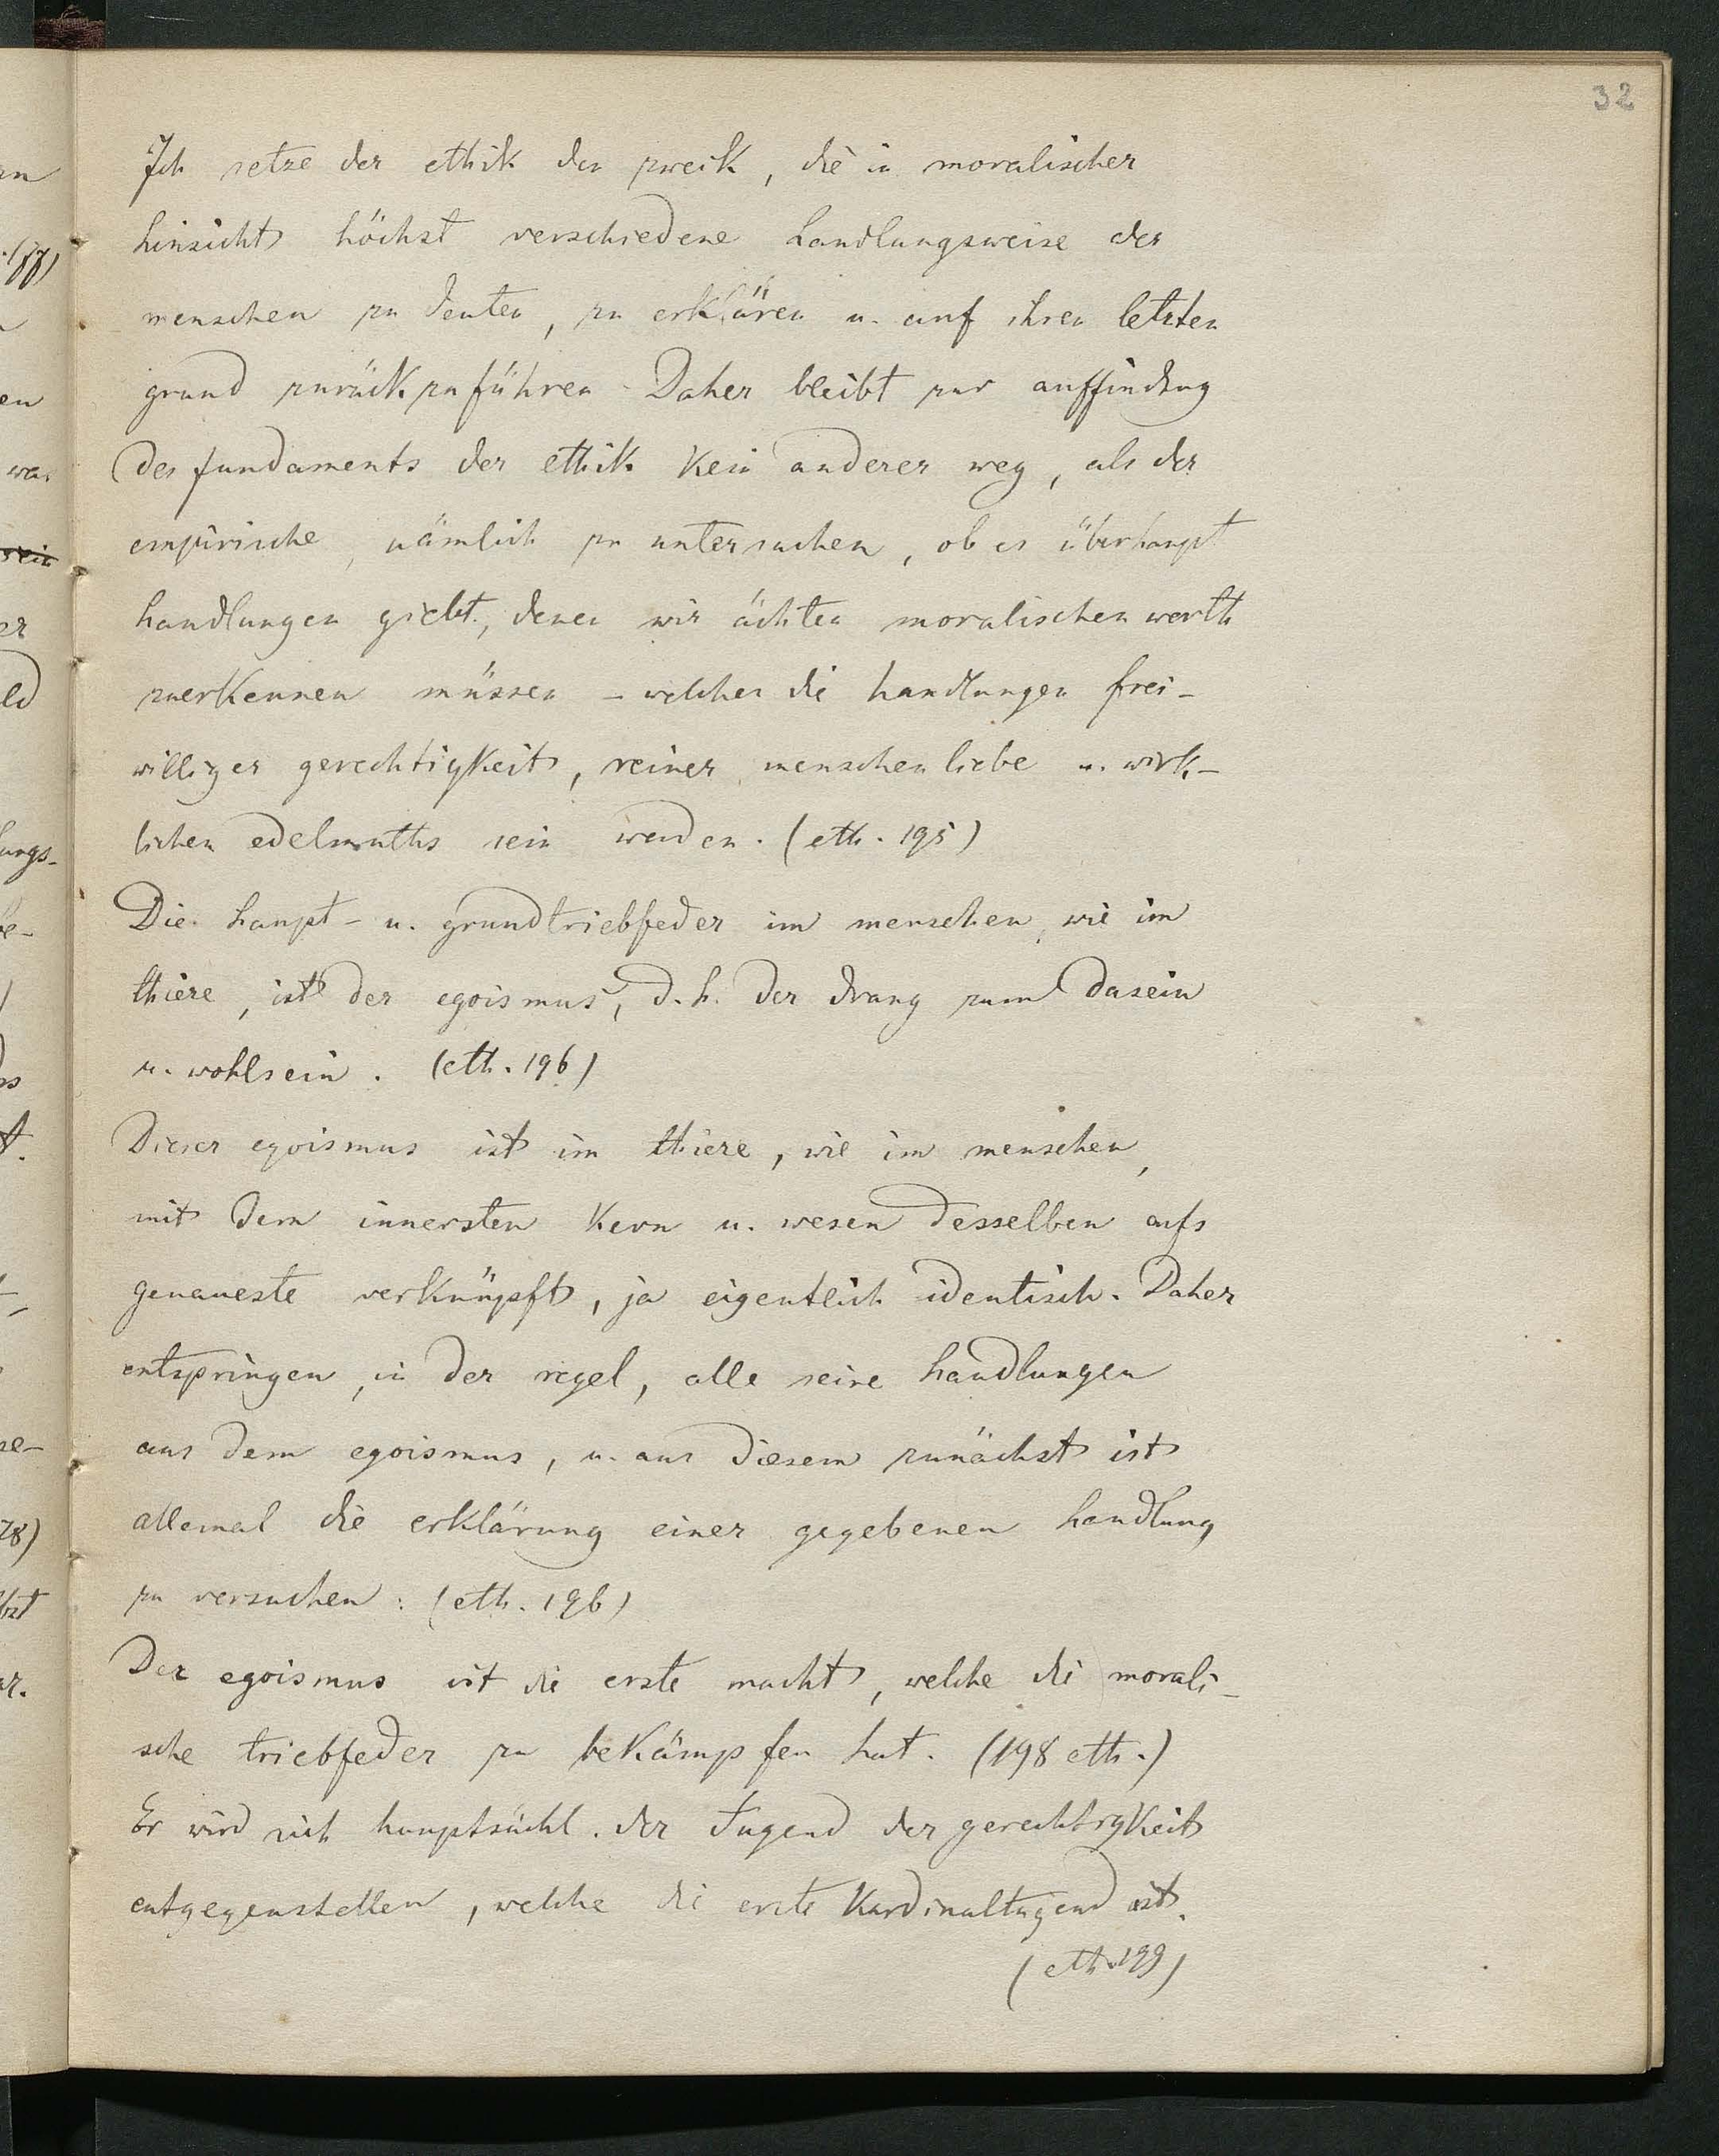 32
Ich setze der ethik den zweck, die in moralischer
hinsicht höchst verschiedene handlungsweise der
menschen zu deuten, zu erklären u. auf ihren letzten
grund zurückzuführen. Daher bleibt zur auffindung
des fundaments der ethik kein anderer weg, als der
empirische, nämlich zu untersuchen, ob es überhaupt
handlungen giebt, denen wir ächten moralischen werth
zuerkennen müssen – welches die handlungen frei-
williger gerechtigkeit, reiner menschenliebe u. wirk-
lichen edelmuths sein werden. (eth. 195)
Die haupt- u. grundtriebfeder im menschen, wie im
thiere, ist der egoismus, d.h. der drang zum dasein
u. wohlsein. (eth. 196)
Dieser egoismus ist im thiere, wie im menschen,
mit dem innersten kern u. wesen desselben aufs
genaueste verknüpft, ja eigentlich identisch. Daher
entspringen, in der regel, alle seine handlungen
aus dem egoismus, u. aus diesem zunächst ist
allemal die erklärung einer gegebenen handlung
zu versuchen. (eth. 196)
Der egoismus ist die erste macht, welche die morali-
sche triebfeder zu bekämpfen hat. (198 eth.)
Er wird sich hauptsächl. der Tugend der gerechtigkeit
entgegenstellen, welche die erste Kardinaltugend ist.
(eth. 199)